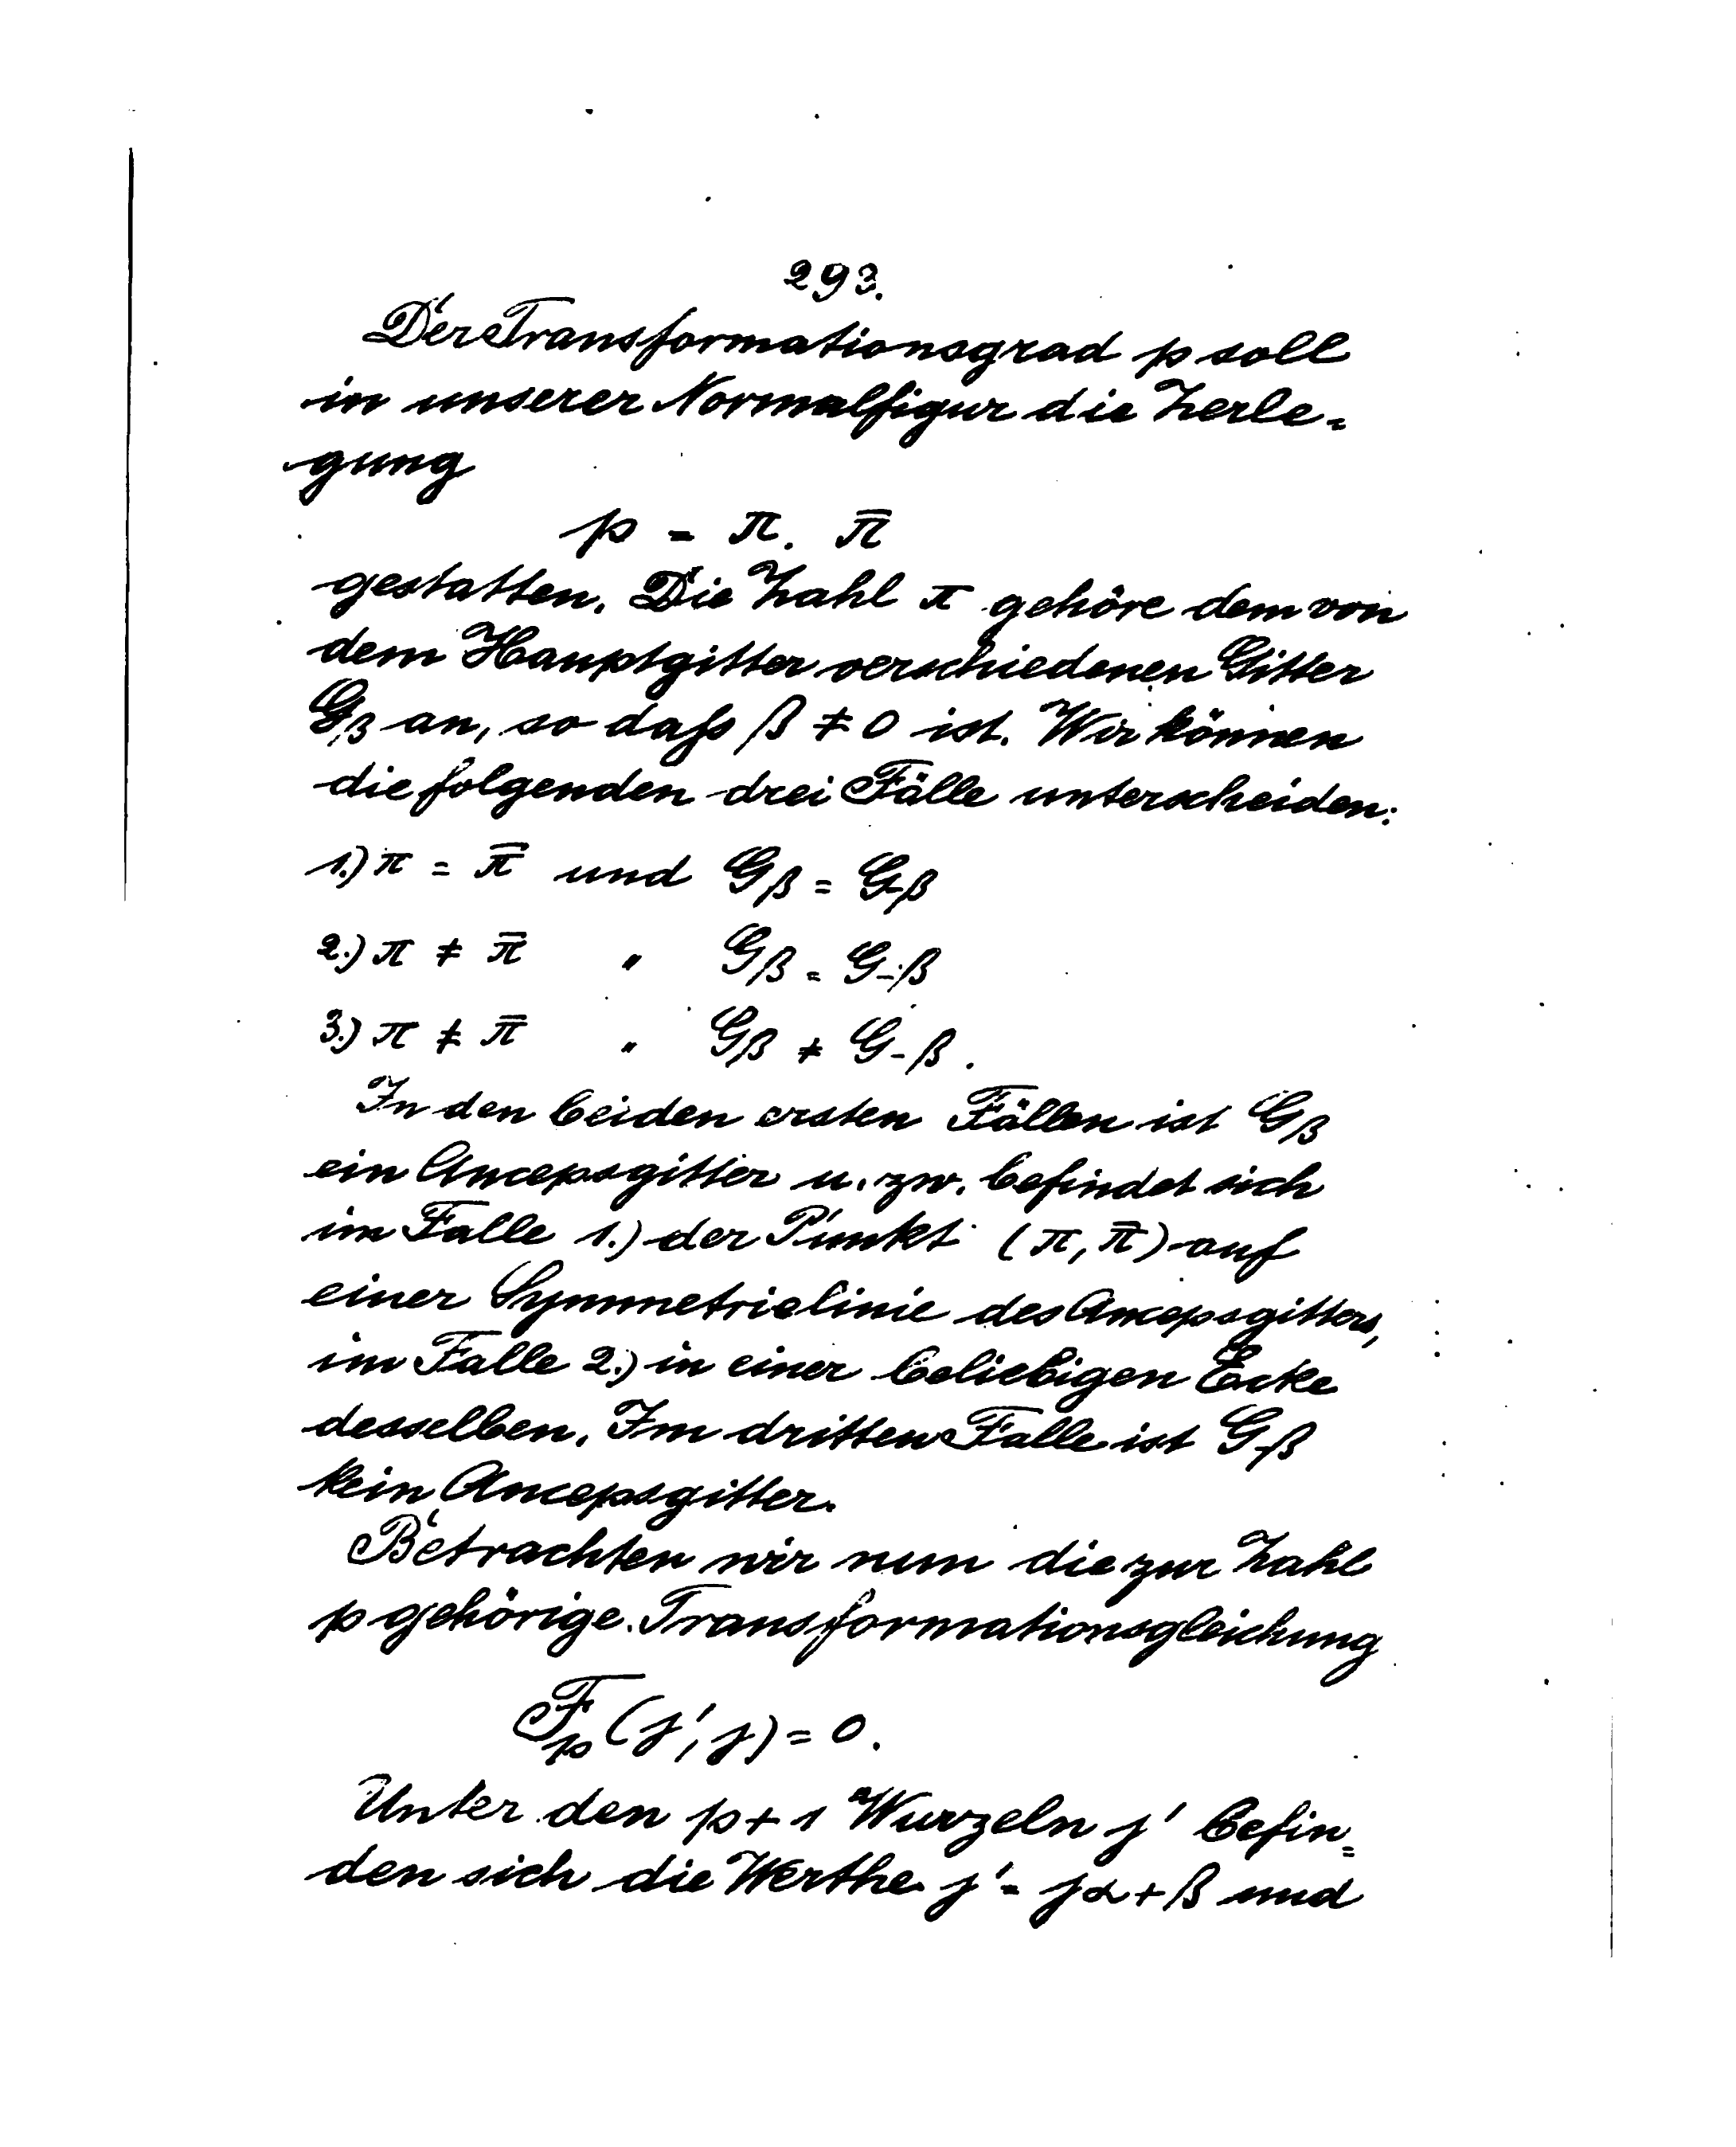 293.
Der Transformationsgrad p soll
in unserer Normalfigur die Zerle=
gung
p = π. π̄
gestatten. Die Zahl π gehöre dem von
dem Hauptgitter verschiedenen Gitter
Gβ an, so daſs β ≠ 0 ist. Wir können
die folgenden drei Fälle unterscheiden:
1.) π = π̄ und Gβ = G-β
2.) π ≠ π̄ " Gβ = G-β
3.) π ≠ π̄ " Gβ ≠ G-β.
In den beiden ersten Fällen ist Gβ
ein Ancepsgitter u. zw. befindet sich
im Falle 1.) der Punkt (π, π̄) auf
einer Symmetrielinie des Ancepsgitters,
im Falle 2.) in einer beliebigen Ecke
desselben. Im dritten Falle ist Gβ
kein Ancepsgitter.
Betrachten wir nun die zur Zahl
p gehörige Transformationsgleichung
Fp (j', j) = 0.
Unter den p + 1 Wurzeln j' befin=
den sich die Werthe j' = jα + β und